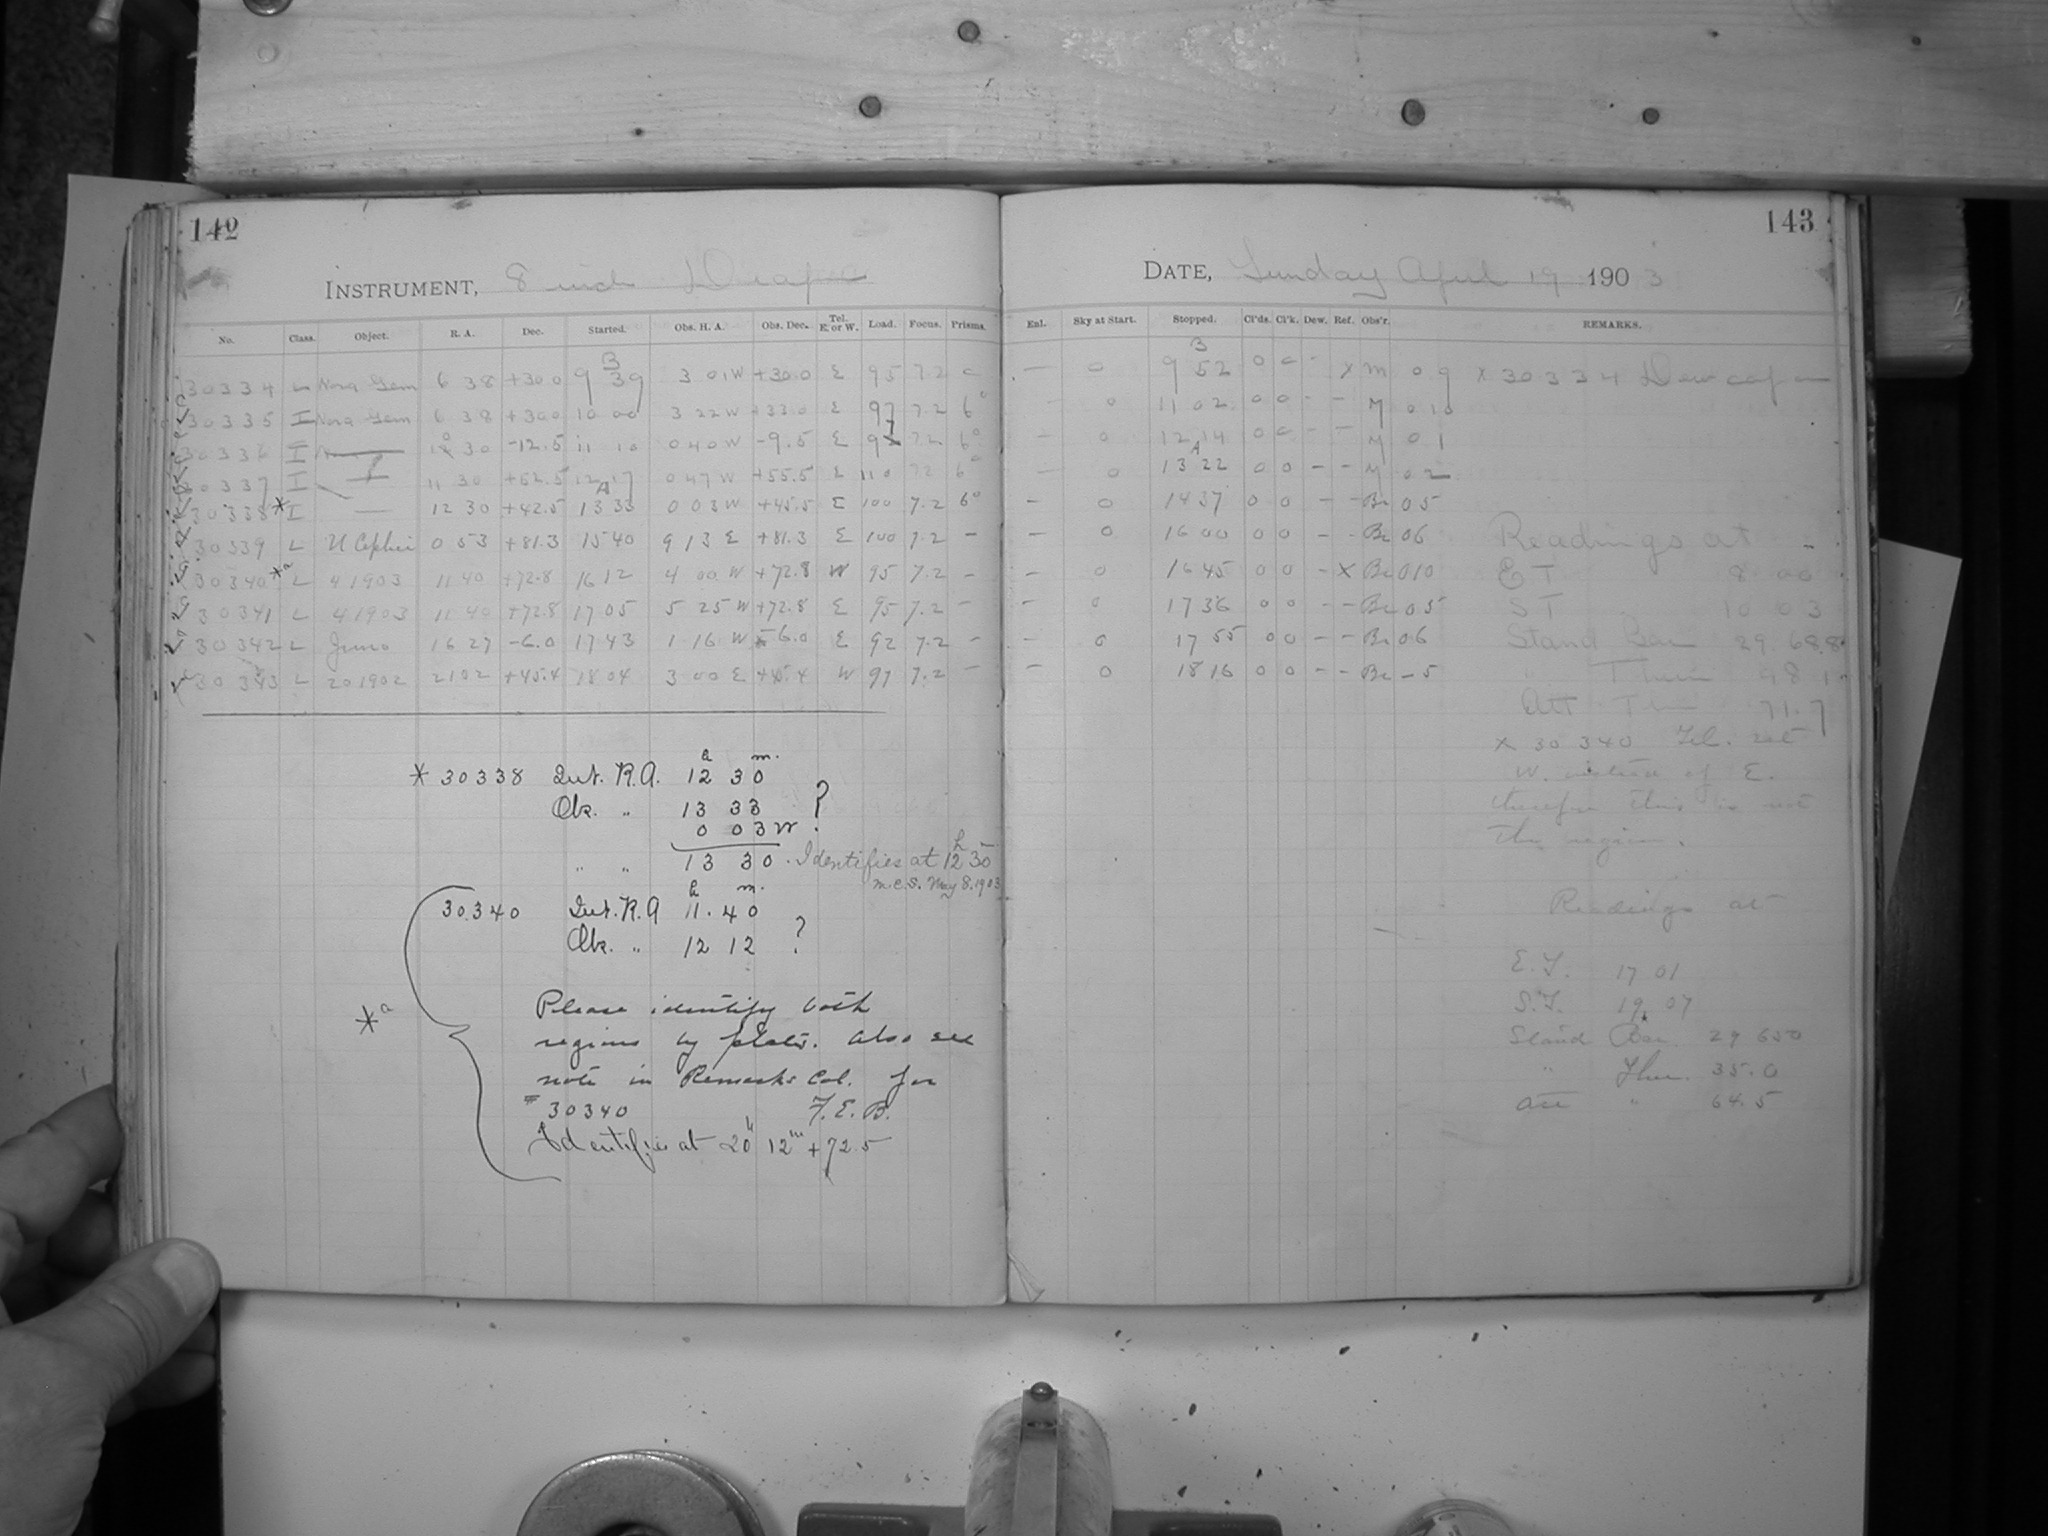 142
INSTRUMENT, 8 inch Draper
No. Class. Object. R. A. Dec. Started. Obs. H. A. Obs. Dec. Tel. E. or W. Load. Focus. Prisms.
30334 L Nova Gem 6 38 +30.0 9 39 3 01 W +30.0 E 95 7.2
30335 I Nova Gem 6 38 +30.0 10 00 3 22 W E 97 7.2 6°
30336 I 30 -12.5 11 10 0 40 W -9.5 E 7.2 6°
30337 I 11 30 12 17 0 47 W +55.5 E 110 7.2 6°
30338 * I — 12 30 +42.5 13 33 0 03 W +45.5 E 100 7.2 6°
30339 L U Cephei 0 53 +81.3 15 40 9 13 E +81.3 E 100 7.2 –
30340 *a L 4 1903 11 40 +72.8 16 12 4 00 W +72.8 W 95 7.2 –
30341 L 4 1903 11 40 +72.8 17 05 5 25 W +72.8 E 95 7.2 –
30342 L Juno 16 27 -6.0 17 43 1 16 W -6.0 E 92 7.2 –
30343 L 20 1902 21 02 +45.4 18 04 3 00 E +45.4 W 97 7.2 –
h m.
* 30338 Int. R.A. 12 30
Ob. " 13 33 ?
0 03 W
" " 13 30. Identifies at 12h 30
m.c.s. May 8. 1903
h m.
30340 Int. R.A 11. 40
Ob. " 12 12 ?
*a
Please identify both
regions by plates. Also see
note in Remarks Col. for
# 30340 F. E. B.
Identifies at 20h 12m +72.5
143
DATE, Sunday April 19 1903
Enl. Sky at Start. Stopped. Cl'ds. Cl'k. Dew. Ref. Obs'r. REMARKS.
– 0 9 52 0 0 - x m 0 9 x 30334 Dew cap on
0 11 02 0 0 - - M 0 10
– 0 12 14 0 0 - - M 0 1
– 0 13 22 0 0 - - M 0 2
– 0 14 37 0 0 - - Be 0 5
– 0 16 00 0 0 - - Be 0 6 Readings at
– 0 16 45 0 0 - X Be 0 10 E T 8 00
– 0 17 36 0 0 - - Be 0 5 S T 10 03
– 0 17 55 0 0 - - Be 0 6 Stand Bar 29.688
– 0 18 16 0 0 - - Be – 5 " Ther 98.1
Att Ther 71.7
x 30340 Tel. set
W. instead of E.
therefore this is not
the region.
Readings at
E. T. 17 01
S. T. 19 07
Stand Bar. 29 650
" Ther. 35.0
Att " 64.5